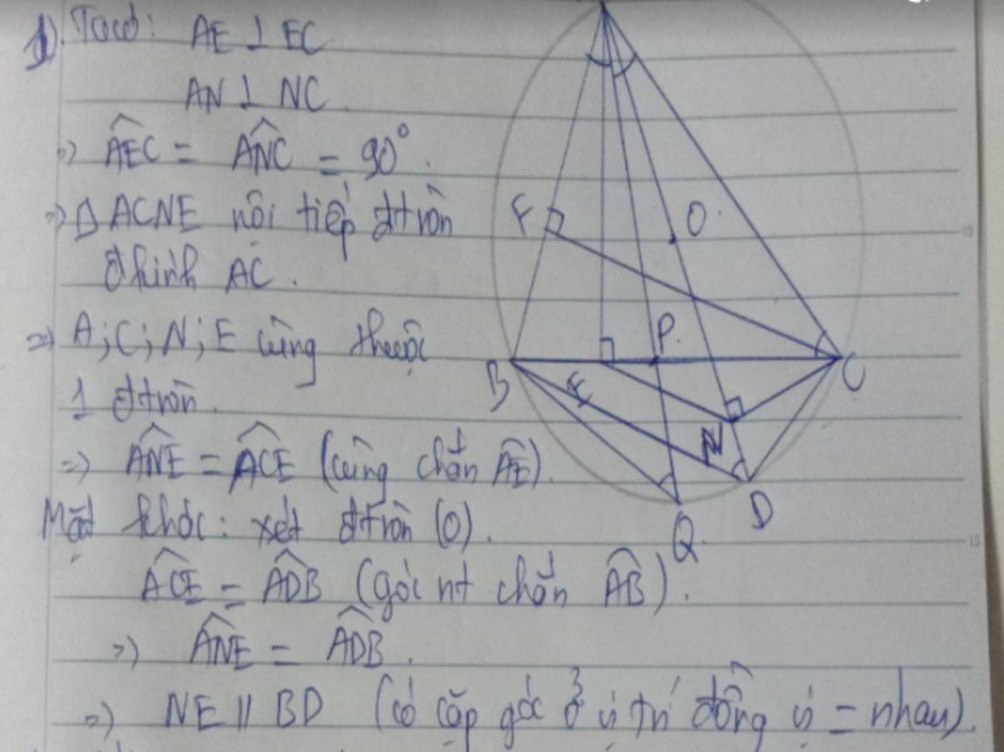 1) Ta có: AE ⊥ EC
AN ⊥ NC
=> \widehat{AEC} = \widehat{ANC} = 90°.
=> ◊ ACNE nội tiếp đtròn
đkính AC.
=> A; C; N; E cùng thuộc
1 đtròn.
=> \widehat{ANE} = \widehat{ACE} (cùng chắn \widehat{AE}).
Mặt khác: xét đtròn (O).
\widehat{ACE} = \widehat{ADB} (góc nt chắn \widehat{AB}).
=> \widehat{ANE} = \widehat{ADB}.
=> NE // BD (có cặp góc ở vị trí đồng vị = nhau).
F
O
P
B
E
C
N
Q
D